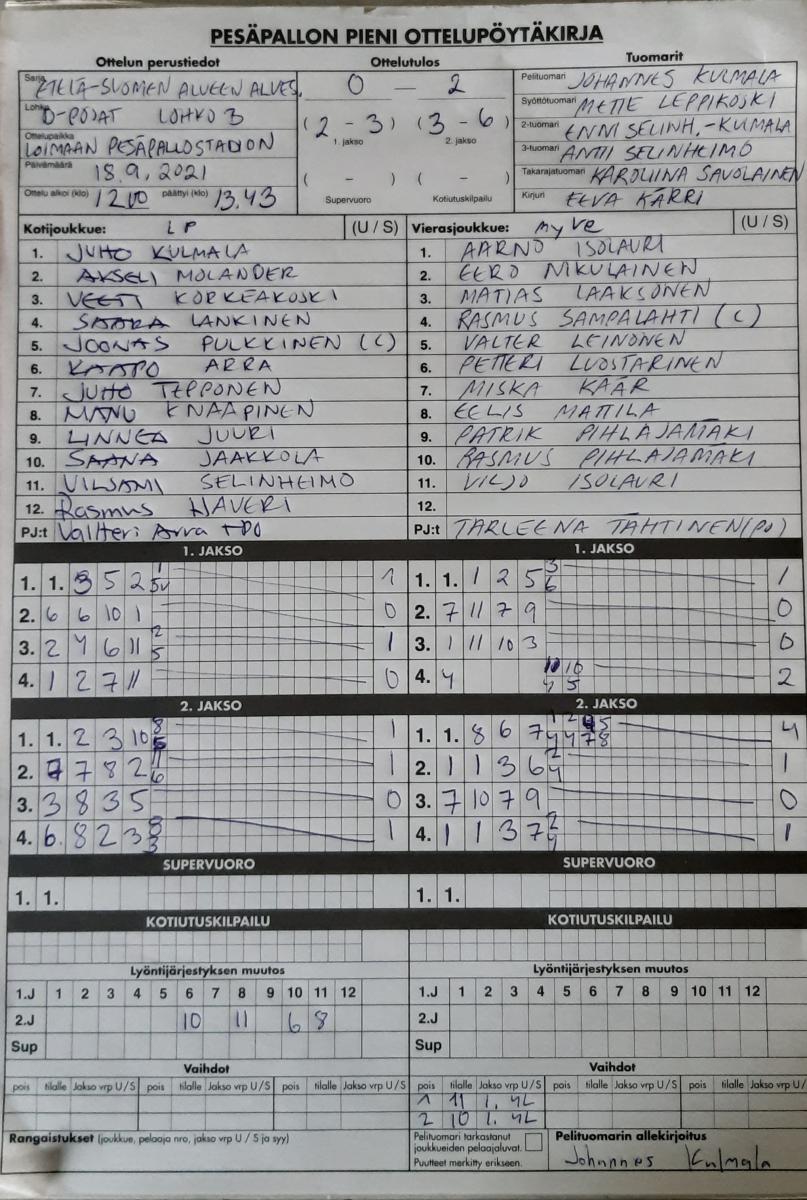 PESÄPALLON PIENI OTTELUPÖYTÄKIRJA
Ottelun perustiedot Ottelutulos Tuomarit
Sarja ETELÄ-SUOMEN ALUEEN ALUES.
Lohko D-POJAT LOHKO 3
Ottelupaikka LOIMAAN PESÄPALLOSTADION
Päivämäärä 18.9.2021
Ottelu alkoi (klo) 12.00 päättyi (klo) 13.43
0 — 2
(2 - 3) (3 - 6)
1. jakso 2. jakso
( - ) ( - )
Supervuoro Kotiutuskilpailu
Pelituomari JOHANNES KULMALA
Syöttötuomari METTE LEPPIKOSKI
2-tuomari ENNI SELINH.-KULMALA
3-tuomari ANTTI SELINHEIMO
Takarajatuomari KAROLIINA SAVOLAINEN
Kirjuri EEVA KÄRRI
Kotijoukkue: LP (U / S)
1. JUHO KULMALA
2. AKSELI MOLANDER
3. VEETI KORKEAKOSKI
4. SAARA LANKINEN
5. JOONAS PULKKINEN (C)
6. KAAPO ARRA
7. JUHO TEPPONEN
8. MANU KNAAPINEN
9. LINNEA JUURI
10. SAANA JAAKKOLA
11. VILJAMI SELINHEIMO
12. Rasmus HAVERI
PJ:t Vallteri Arra + PO
Vierasjoukkue: MyVe (U / S)
1. AARNO ISOLAURI
2. EERO NIKULAINEN
3. MATIAS LAAKSONEN
4. RASMUS SAMPALAHTI (C)
5. VALTER LEINONEN
6. PETTERI LUOSTARINEN
7. MISKA KÄÄR
8. EELIS MATTILA
9. PATRIK PIHLAJAMÄKI
10. RASMUS PIHLAJAMÄKI
11. VILJO ISOLAURI
12.
PJ:t TARLEENA TÄHTINEN (PJ)
1. JAKSO 1. JAKSO
1. 1. 3 5 2 1
2. 6 6 10 1 0
3. 2 4 6 11 2 5 1
4. 1 2 7 11 0
1. 1. 1 2 5 3 6 1
2. 7 11 7 9 0
3. 1 11 10 3 0
4. 4 10 10 4 5 2
2. JAKSO 2. JAKSO
1. 1. 2 3 10 8 5 1
2. 7 7 8 2 11 6 1
3. 3 8 3 5 0
4. 6 8 2 3 8 3 1
1. 1. 8 6 7 1 2 5 4 4 7 8 4
2. 1 1 3 6 2 4 1
3. 7 10 7 9 0
4. 1 1 3 7 2 4 1
SUPERVUORO SUPERVUORO
1. 1. 1. 1.
KOTIUTUSKILPAILU KOTIUTUSKILPAILU
Lyöntijärjestyksen muutos Lyöntijärjestyksen muutos
1.J 1 2 3 4 5 6 7 8 9 10 11 12 1.J 1 2 3 4 5 6 7 8 9 10 11 12
2.J 10 11 6 8 2.J
Sup Sup
Vaihdot Vaihdot
pois tilalle Jakso vrp U/S pois tilalle Jakso vrp U/S pois tilalle Jakso vrp U/S pois tilalle Jakso vrp U/S pois tilalle Jakso vrp U/S pois tilalle Jakso vrp U/
1 11 1. 4L
2 10 1. 4L
Rangaistukset (joukkue, pelaaja nro, jakso vrp U / S ja syy)
Pelituomari tarkastanut
joukkueiden pelaajaluvat.
Puutteet merkitty erikseen.
Pelituomarin allekirjoitus
Johannes Kulmala